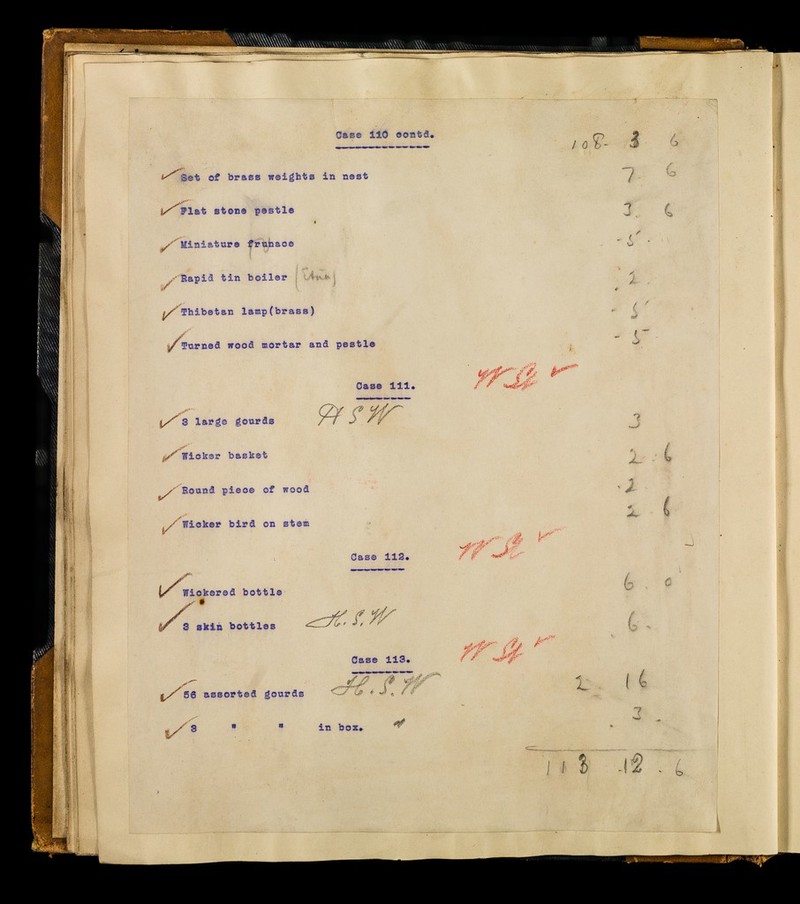 Case 110 contd.
108- 3 6
Set of brass weights in nest 7 6
Flat stone pestle 3. 6
Miniature frunace - 5 .
Rapid tin boiler . 2 .
Thibetan lamp(brass) - 5
Turned wood mortar and pestle - 5
Case 111.
3 large gourds HSW 3
Wicker basket 2 . 6
Round piece of wood . 2
Wicker bird on stem 2 . 6
Case 112.
Wickered bottle 6 . 0
2 skin bottles H.S.W . 6 -
Case 113.
56 assorted gourds H.S.W 2. 16
3 " " in box. . 3 .
113 .12 . 6